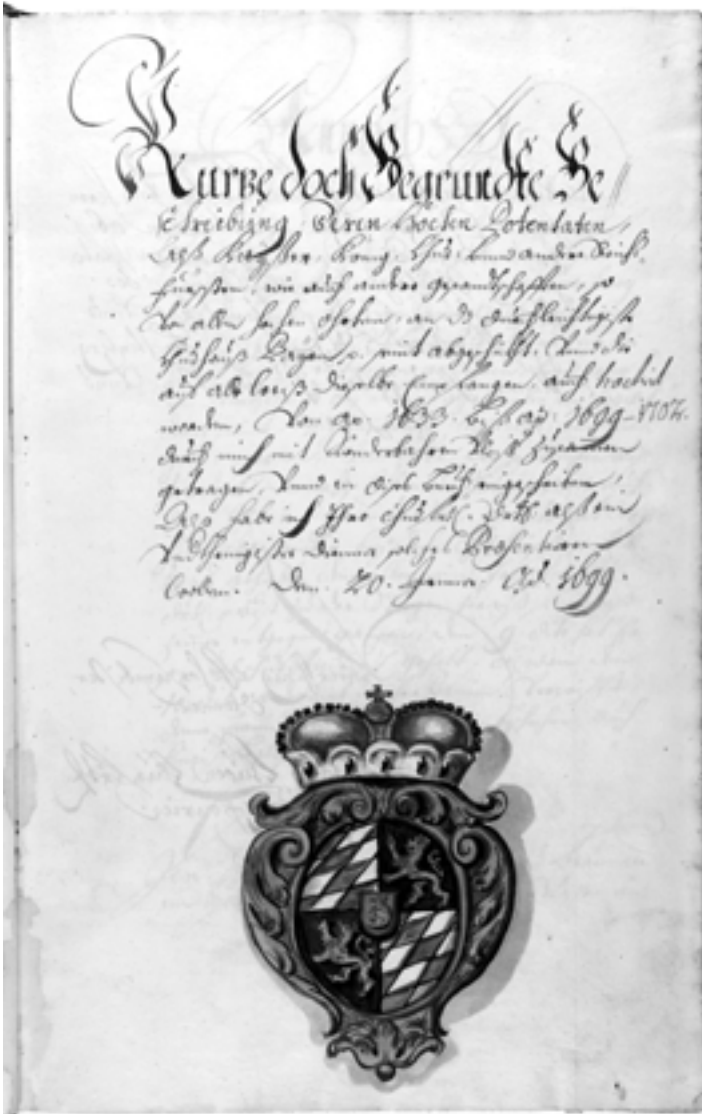 Kurtze doch Begrundte Be
schreibung deren Hochen Potentaten,
deß Kaysser, König, Chur: unnd andere Reichs
Fürssten, wie auch andere gesandtschafften, so
Von allen hochen ohrten, an diß durchleichtigiste
Churhauß Bayrn, abgeschickht, Vnnd die
auf alle weiß dieselbe Empfangen, auch tractirt
worden, Von aō: 1633. biß aō: 1699-1702.
durch mich mit sonderbahren Vleiß zusamen
getragen, Vnnd in dises buech eingeschriben,
habe ich Ihro Churfrtl: Drtl: alß ein
Vnderthenigister Dienner solches Presentieren
wollen. Den 20. Jenner Aō. 1699.